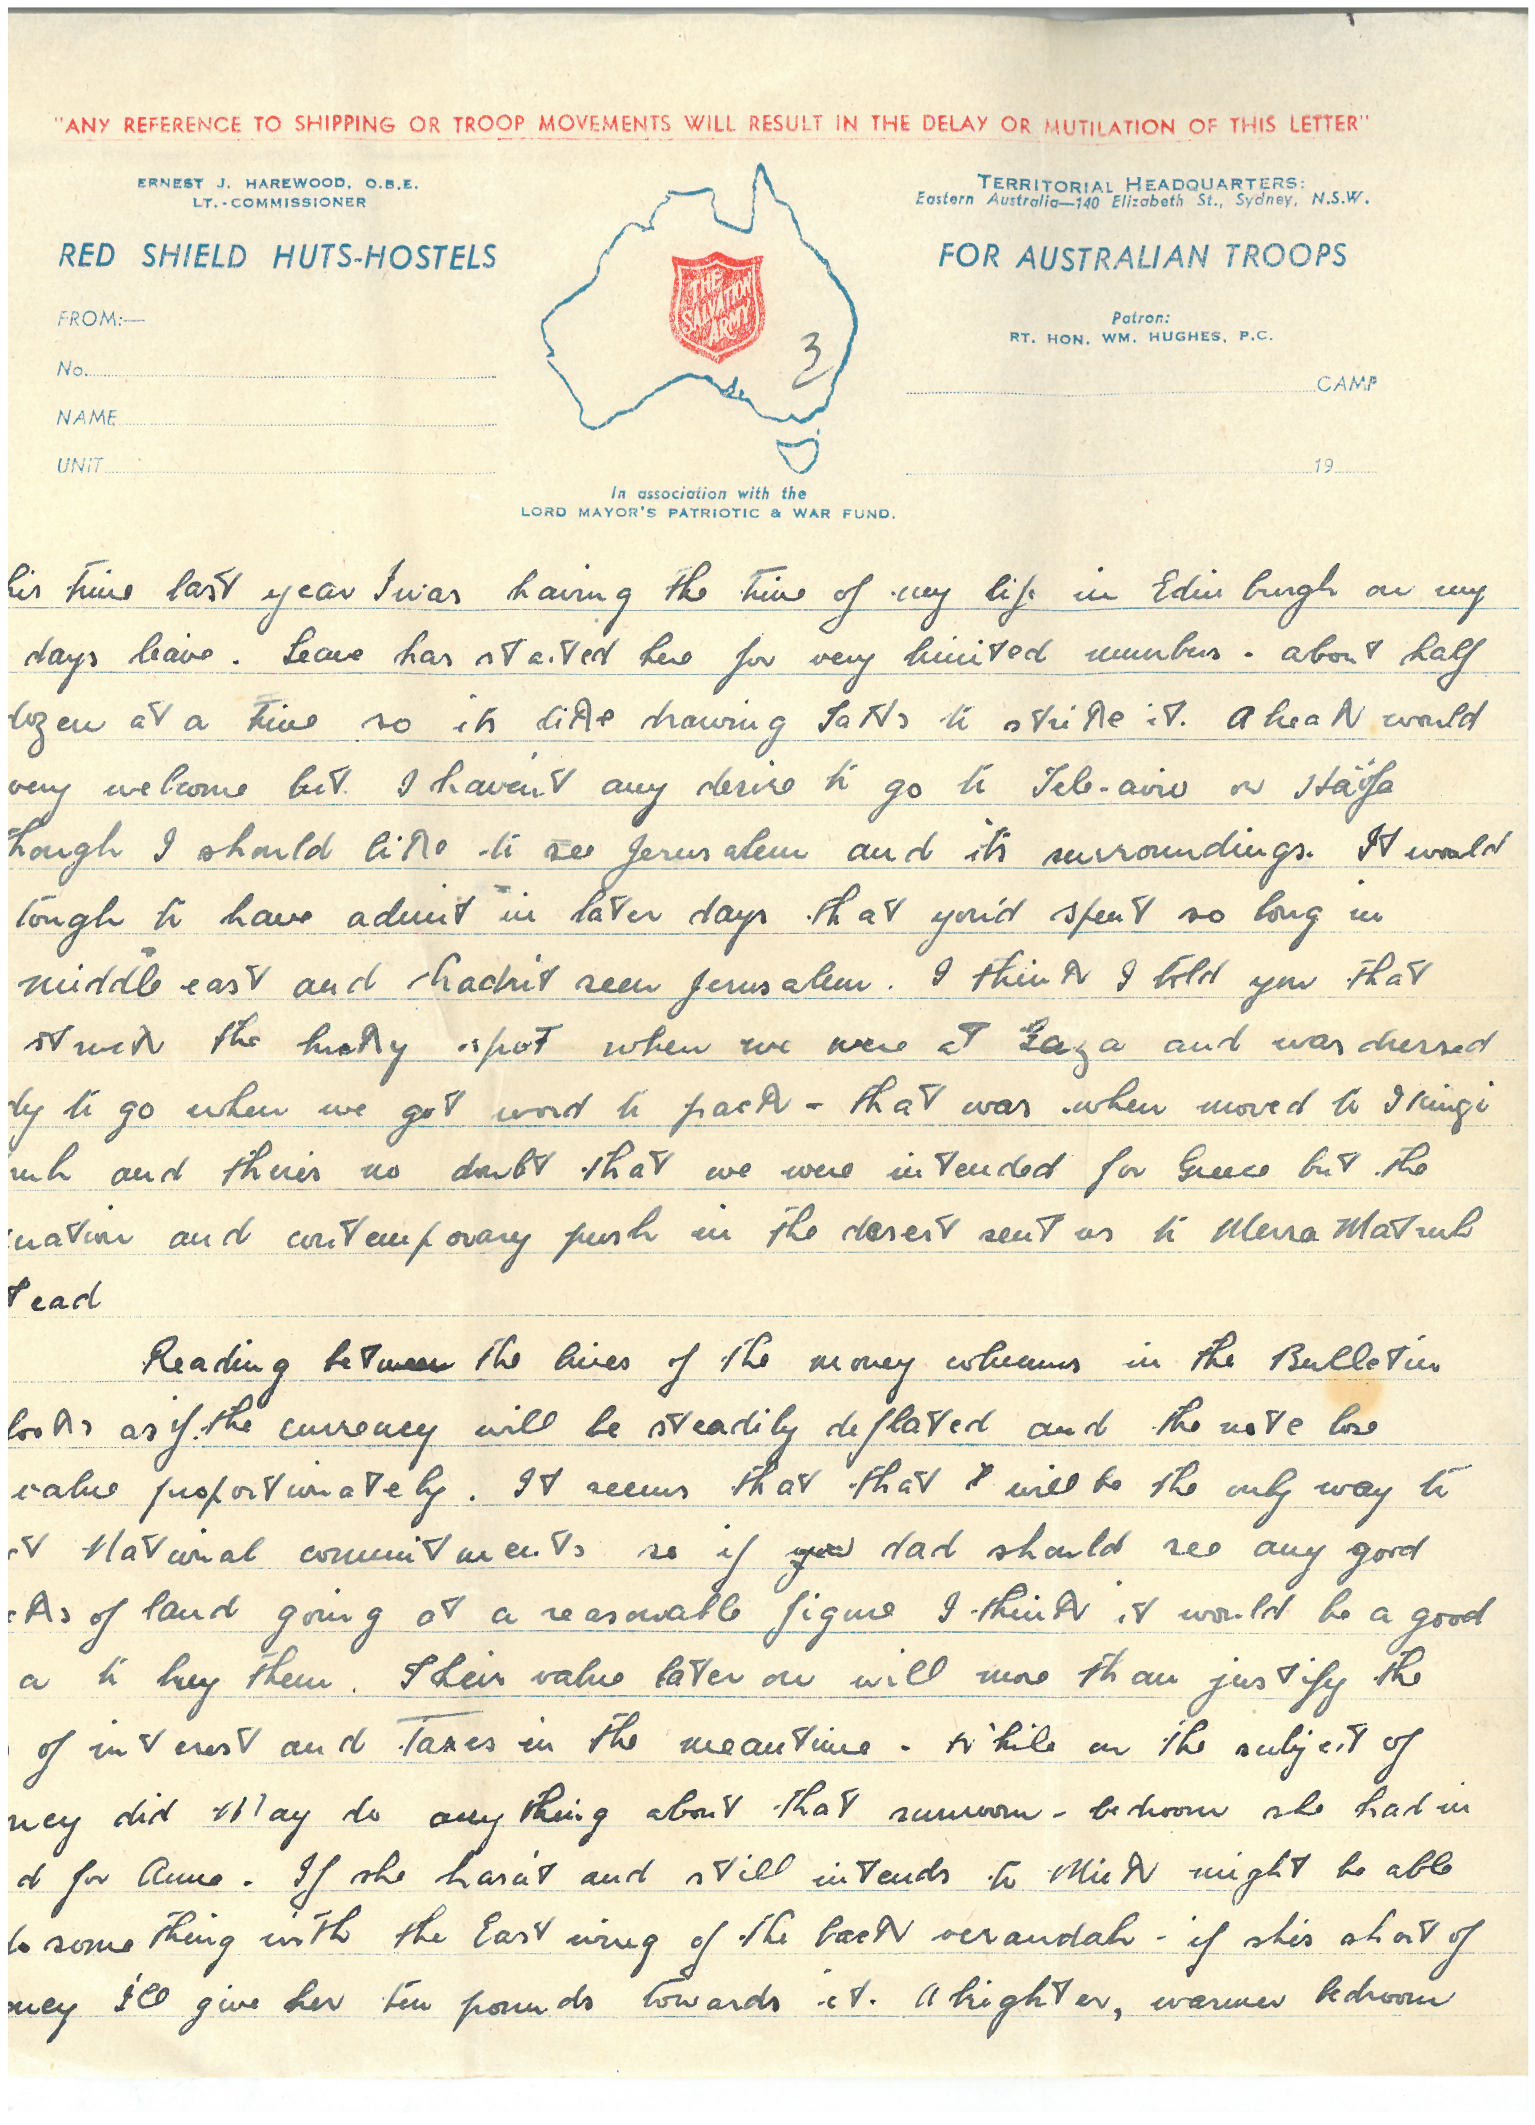 "ANY REFERENCE TO SHIPPING OR TROOP MOVEMENTS WILL RESULT IN THE DELAY OR MUTILATION OF THIS LETTER"
ERNEST J. HAREWOOD, O.B.E.
LT.-COMMISSIONER
RED SHIELD HUTS-HOSTELS
FROM:—
No.
NAME
UNIT
THE
SALVATION
ARMY
3
In association with the
LORD MAYOR'S PATRIOTIC & WAR FUND.
TERRITORIAL HEADQUARTERS:
Eastern Australia—140 Elizabeth St., Sydney, N.S.W.
FOR AUSTRALIAN TROOPS
Patron:
RT. HON. WM. HUGHES, P.C.
CAMP
19
his time last year I was having the time of my life in Edinburgh on my
days leave. Leave has started here for very limited numbers - about half
dozen at a time so its like drawing Tatts to strike it. A break would
very welcome but I haven't any desire to go to Tele-aviv or Haifa
though I should like to see Jerusalem and its surroundings. It would
tough to have admit in later days that you'd spent so long in
middle east and hadn't seen Jerusalem. I think I told you that
struck the lucky spot when we were at Gaza and was dressed
dy to go when we got word to pack - that was when moved to Ikingi
ruh and theris no doubt that we were intended for Greece but the
uation and contemporary push in the desert sent us to Mersa Matruh
tead
Reading between the lines of the money columns in the Bulletin
looks as if the currency will be steadily deflated and the note lose
value proportionately. It seems that that will be the only way to
et National commitments so if you dad should see any good
cks of land going at a reasonable figure I think it would be a good
a to buy them. Their value later on will more than justify the
of interest and taxes in the meantime. While on the subject of
ney did May do anything about that sunroom-bedroom she had in
d for Anne. If she hasn't and still intends to Mick might be able
do something with the East wing of the back verandah - if shes short of
oney I'll give her ten pounds towards it. A brighter, warmer bedroom